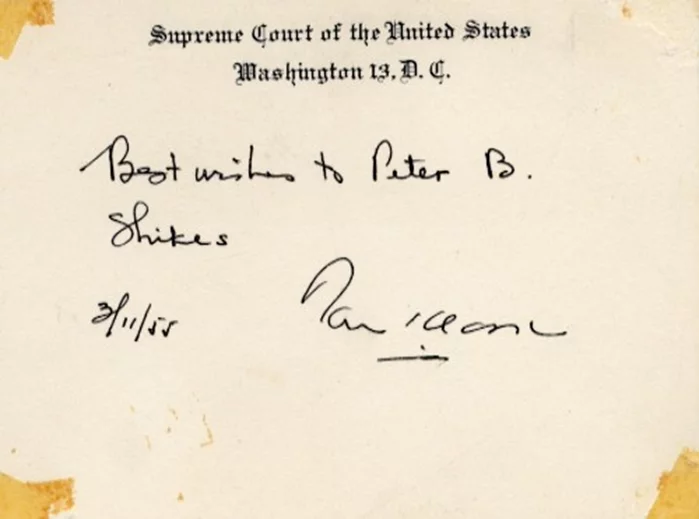 Supreme Court of the United States
Washington 13, D. C.
Best wishes to Peter B.
Shikes
3/11/55